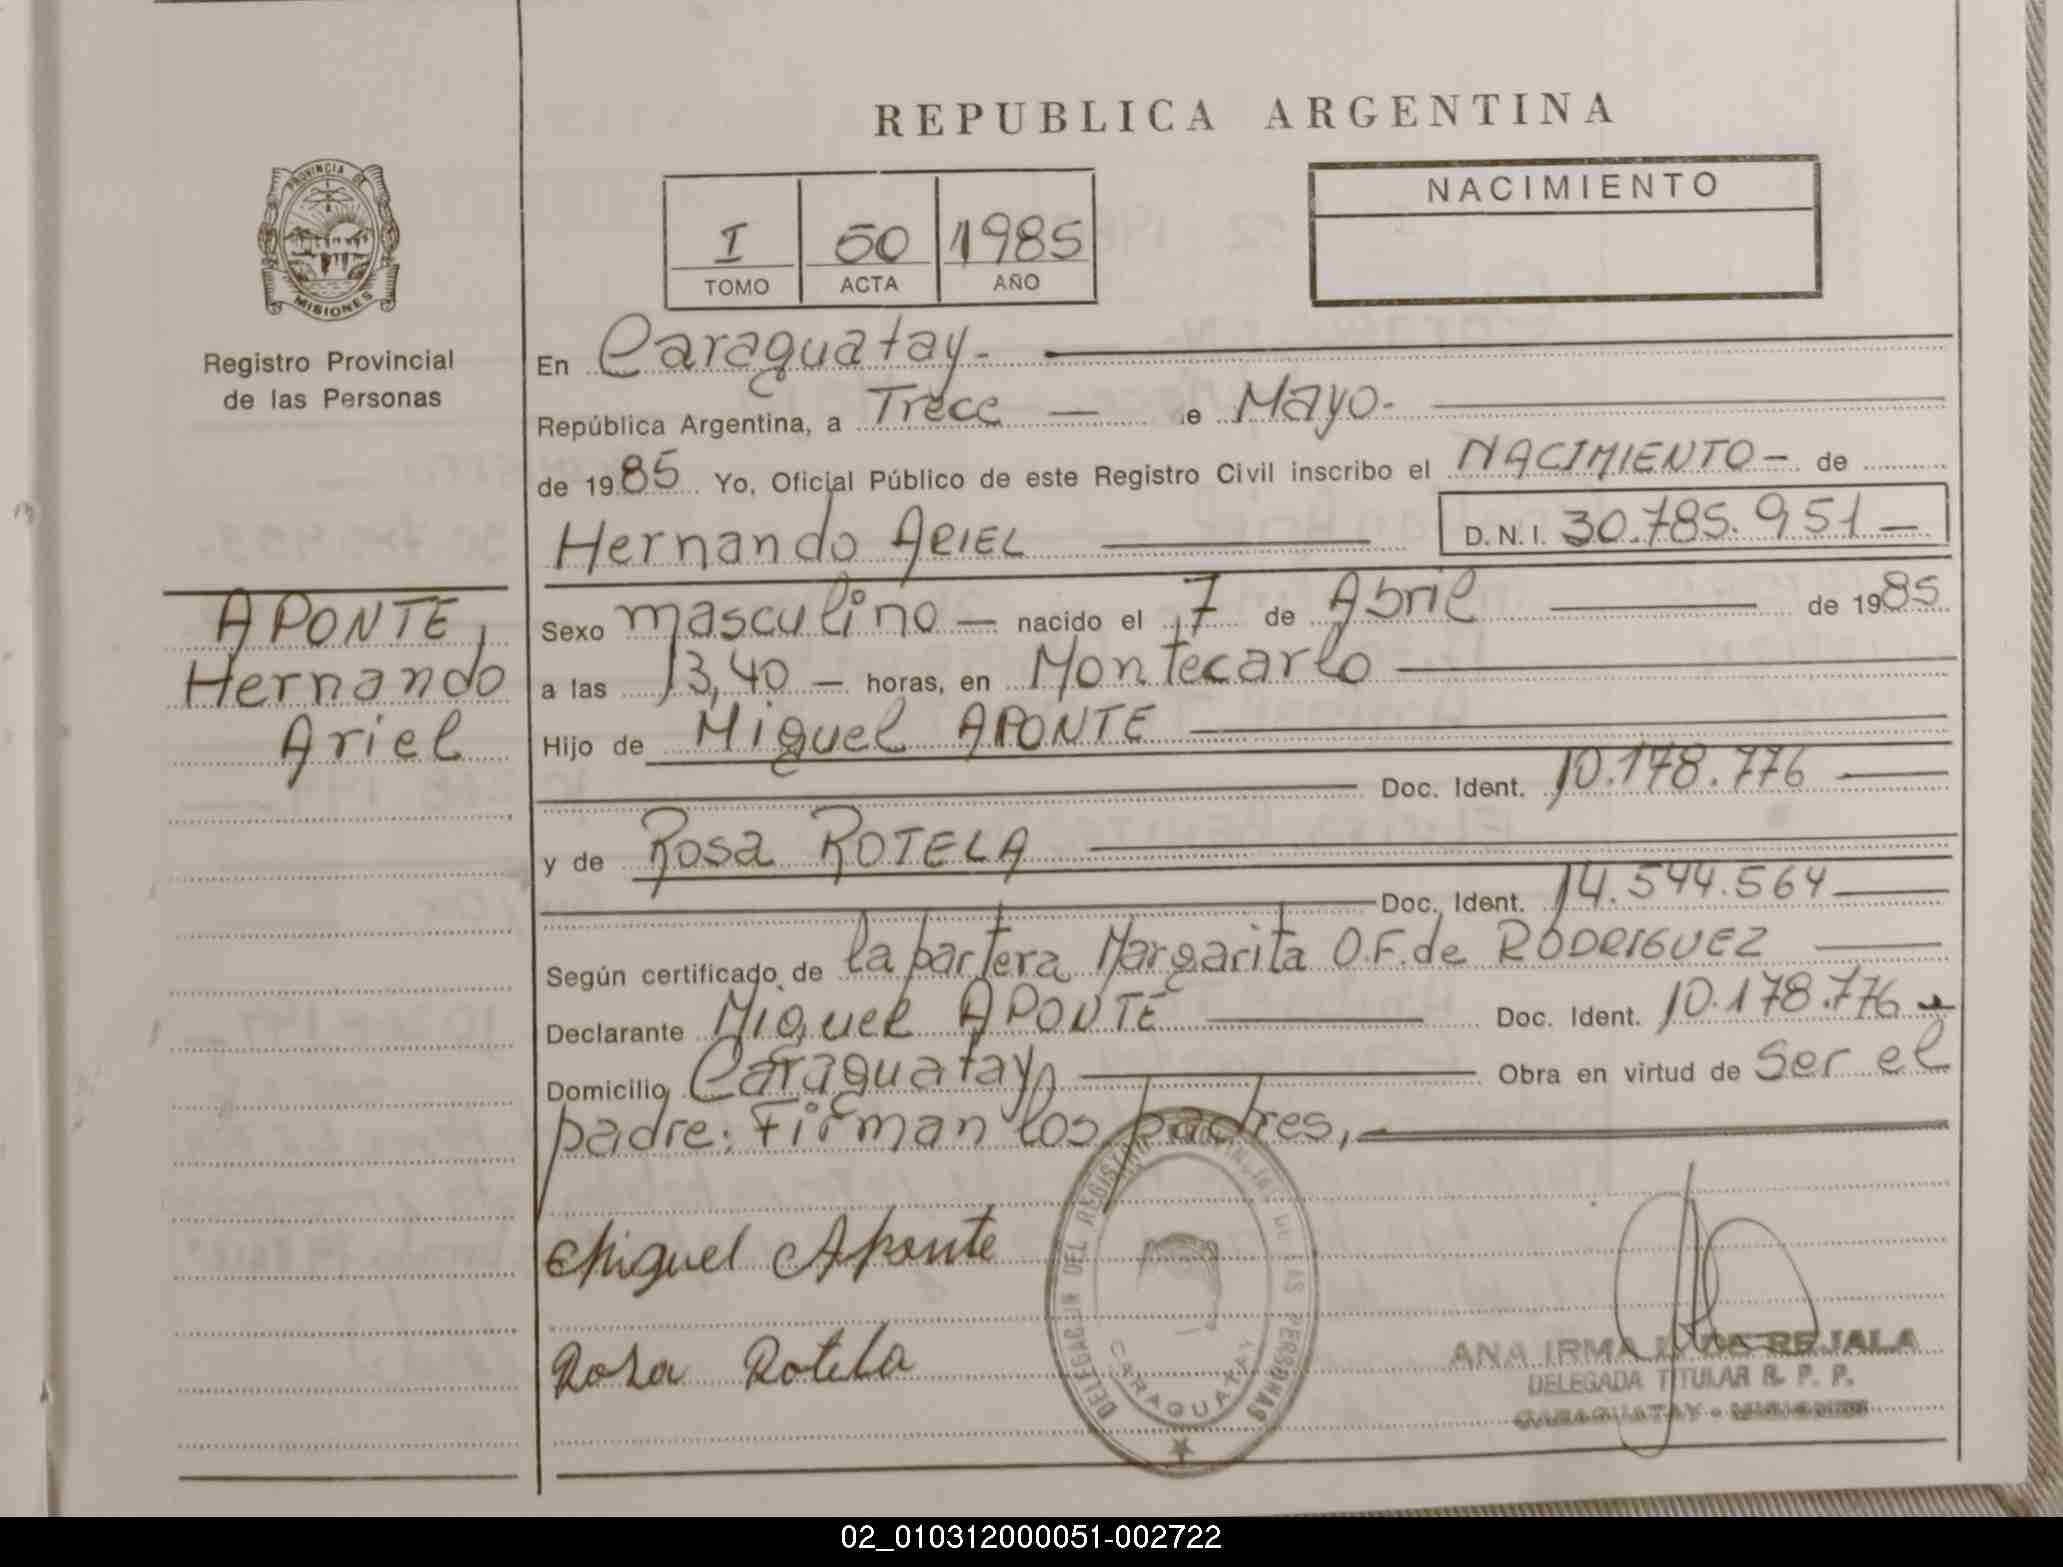 REPUBLICA ARGENTINA
PROVINCIA DE
MISIONES
Registro Provincial
de las Personas
I 50 1985
TOMO ACTA AÑO
NACIMIENTO
En Caraguatay.-
República Argentina, a Trece — e Mayo-
de 1985 Yo, Oficial Público de este Registro Civil inscribo el NACIMIENTO - de
Hernando ARIEL D. N. I. 30.785.951 —
APONTE,
Hernando
Ariel
Sexo masculino — nacido el 7 de Abril de 1985
a las 13,40 — horas, en Montecarlo
Hijo de Miguel APONTE
Doc. Ident. 10.178.776
y de Rosa ROTELA
Doc. Ident. 14.544.564
Según certificado de la partera Margarita O.F. de RODRIGUEZ
Declarante Miguel APONTE Doc. Ident. 10.178.776
Domicilio Caraguatay Obra en virtud de Ser el
padre; Firman los padres,
Miguel Aponte
Rosa Rotela
DELEGACION DEL REGISTRO DE LAS PERSONAS
CARAGUATAY
ANA IRMA REJALA
DELEGADA TITULAR R. P. P.
CARAGUATAY - MISIONES
02_010312000051-002722